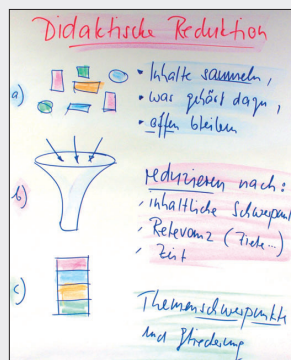 Didaktische Reduktion
a)
• Inhalte sammeln,
• was gehört dazu,
• offen bleiben
b)
reduzieren nach:
, inhaltliche Schwerpunkt
, Relevanz (Ziele...)
, Zeit
c)
Themenschwerpunkte
und Gliederung